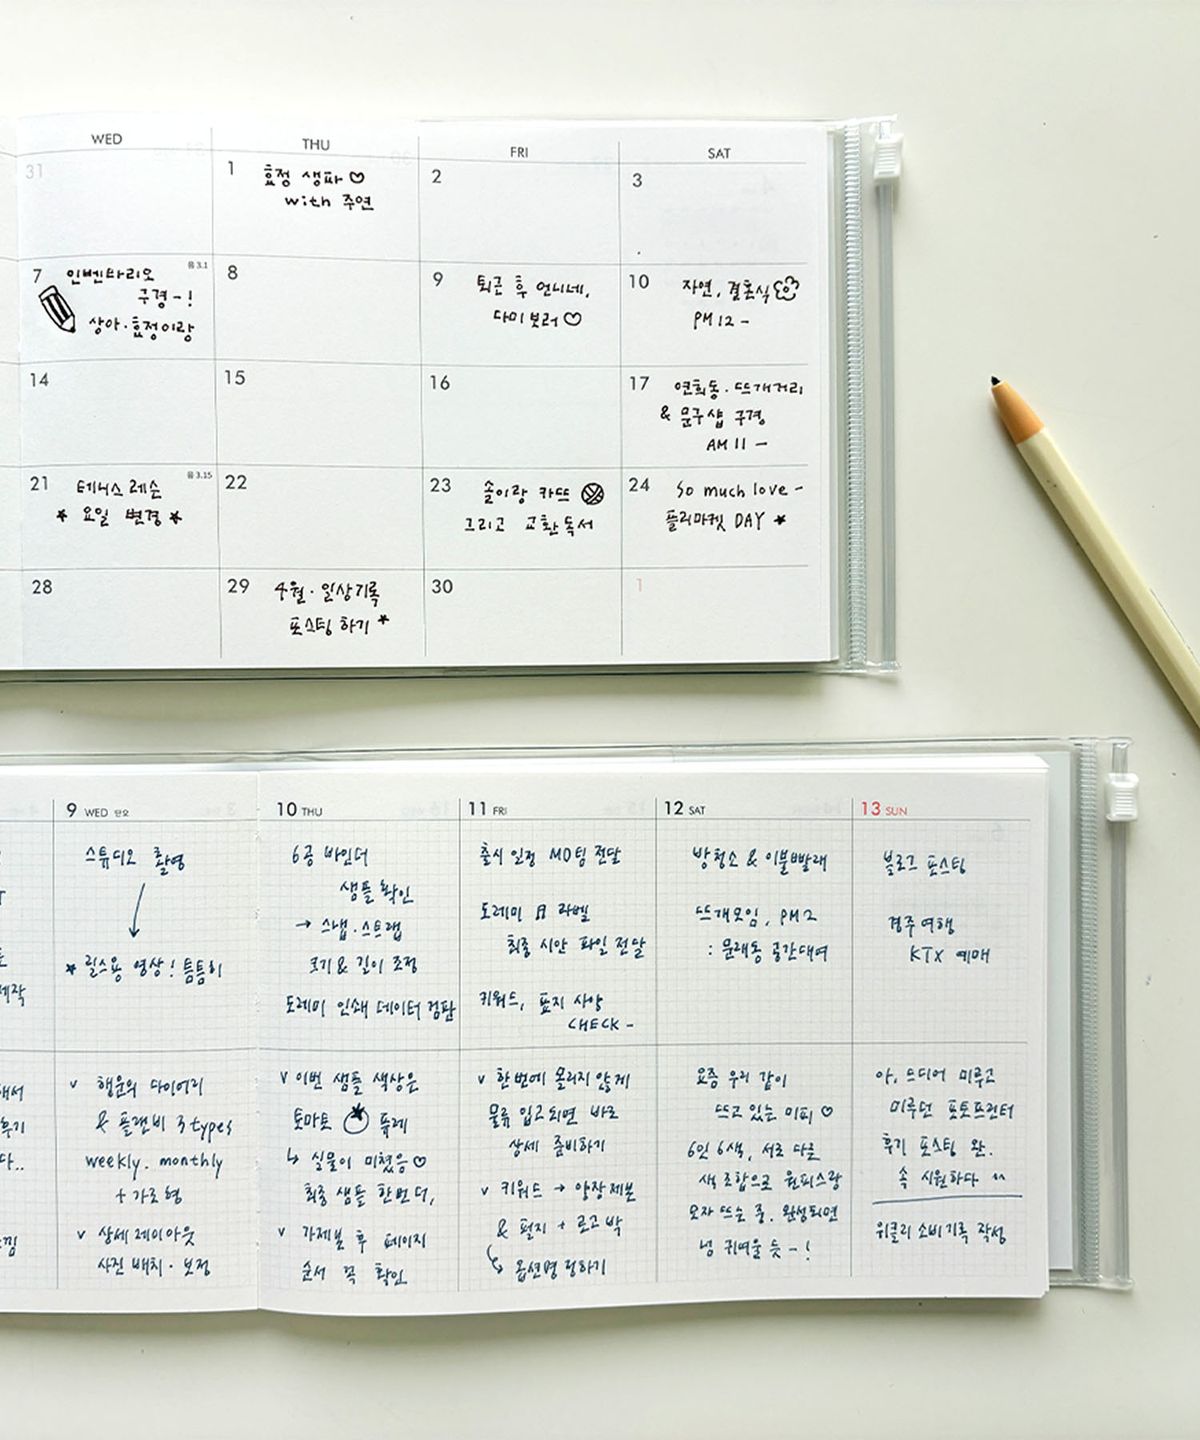 WED
THU
FRI
SAT
31
1
효정 생파♡
with 주연
2
3
7
음 3.1
인벤타리오
구경-!
상아·효정이랑
8
9
퇴근 후 언니네,
다미 보러♡
10
자연, 결혼식
PM 12 -
14
15
16
17
연희동·뜨개거리
& 문구샵 구경
AM 11 -
21
음 3.15
테니스 레슨
* 요일 변경 *
22
23
솔이랑 카뜨
그리고 교환독서
24
So much love -
플리마켓 DAY *
28
29
4월·일상기록
포스팅 하기 *
30
1
9 WED 단오
스튜디오 촬영
* 릴스용 영상! 틈틈히
v 행운의 다이어리
& 플랜비 3 types
weekly. monthly
+ 가로형
v 상세 레이아웃
사진 배치·보정
10 THU
6공 바인더
샘플 확인
→ 스냅·스트랩
크기 & 길이 조정
도레미 인쇄 데이터 검판
v 이번 샘플 색상은
토마토 퓨레
↳ 실물이 미쳤음♡
최종 샘플 한번 더,
v 가제본 후 페이지
순서 꼭 확인
11 FRI
출시 일정 MD팀 전달
도레미 라벨
최종 시안 파일 전달
키워드, 표지 사양
CHECK -
v 한번에 몰리지 않게
물류 입고되면 바로
상세 준비하기
v 키워드 → 양장제본
& 펄지 + 로고 박
옵션명 정하기
12 SAT
방청소 & 이불빨래
뜨개모임, PM 2
: 문래동 공간대여
요즘 우리 같이
뜨고 있는 미피♡
6인 6색, 서로 다른
색 조합으로 원피스랑
모자 뜨는 중. 완성되면
넘 귀여울 듯-!
13 SUN
블로그 포스팅
경주 여행
KTX 예매
아, 드디어 미루고
미루던 포토프린터
후기 포스팅 완.
속 시원하다 ^^
위클리 소비기록 작성
제작
해서
후기
다..
느낌